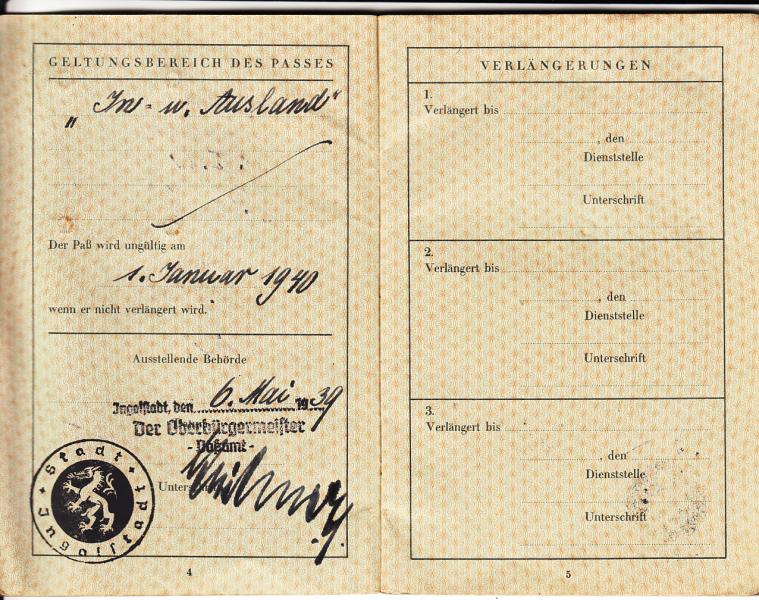 GELTUNGSBEREICH DES PASSES
„In- u. Ausland“
Der Paß wird ungültig am
1. Januar 1940
wenn er nicht verlängert wird.
Ausstellende Behörde
Ingolstadt, den 6. Mai 1939
Der Oberbürgermeister
- Paßamt -
Stadt Ingolstadt
4
VERLÄNGERUNGEN
1.
Verlängert bis
, den
Dienststelle
Unterschrift
2.
Verlängert bis
, den
Dienststelle
Unterschrift
3.
Verlängert bis
, den
Dienststelle
Unterschrift
5